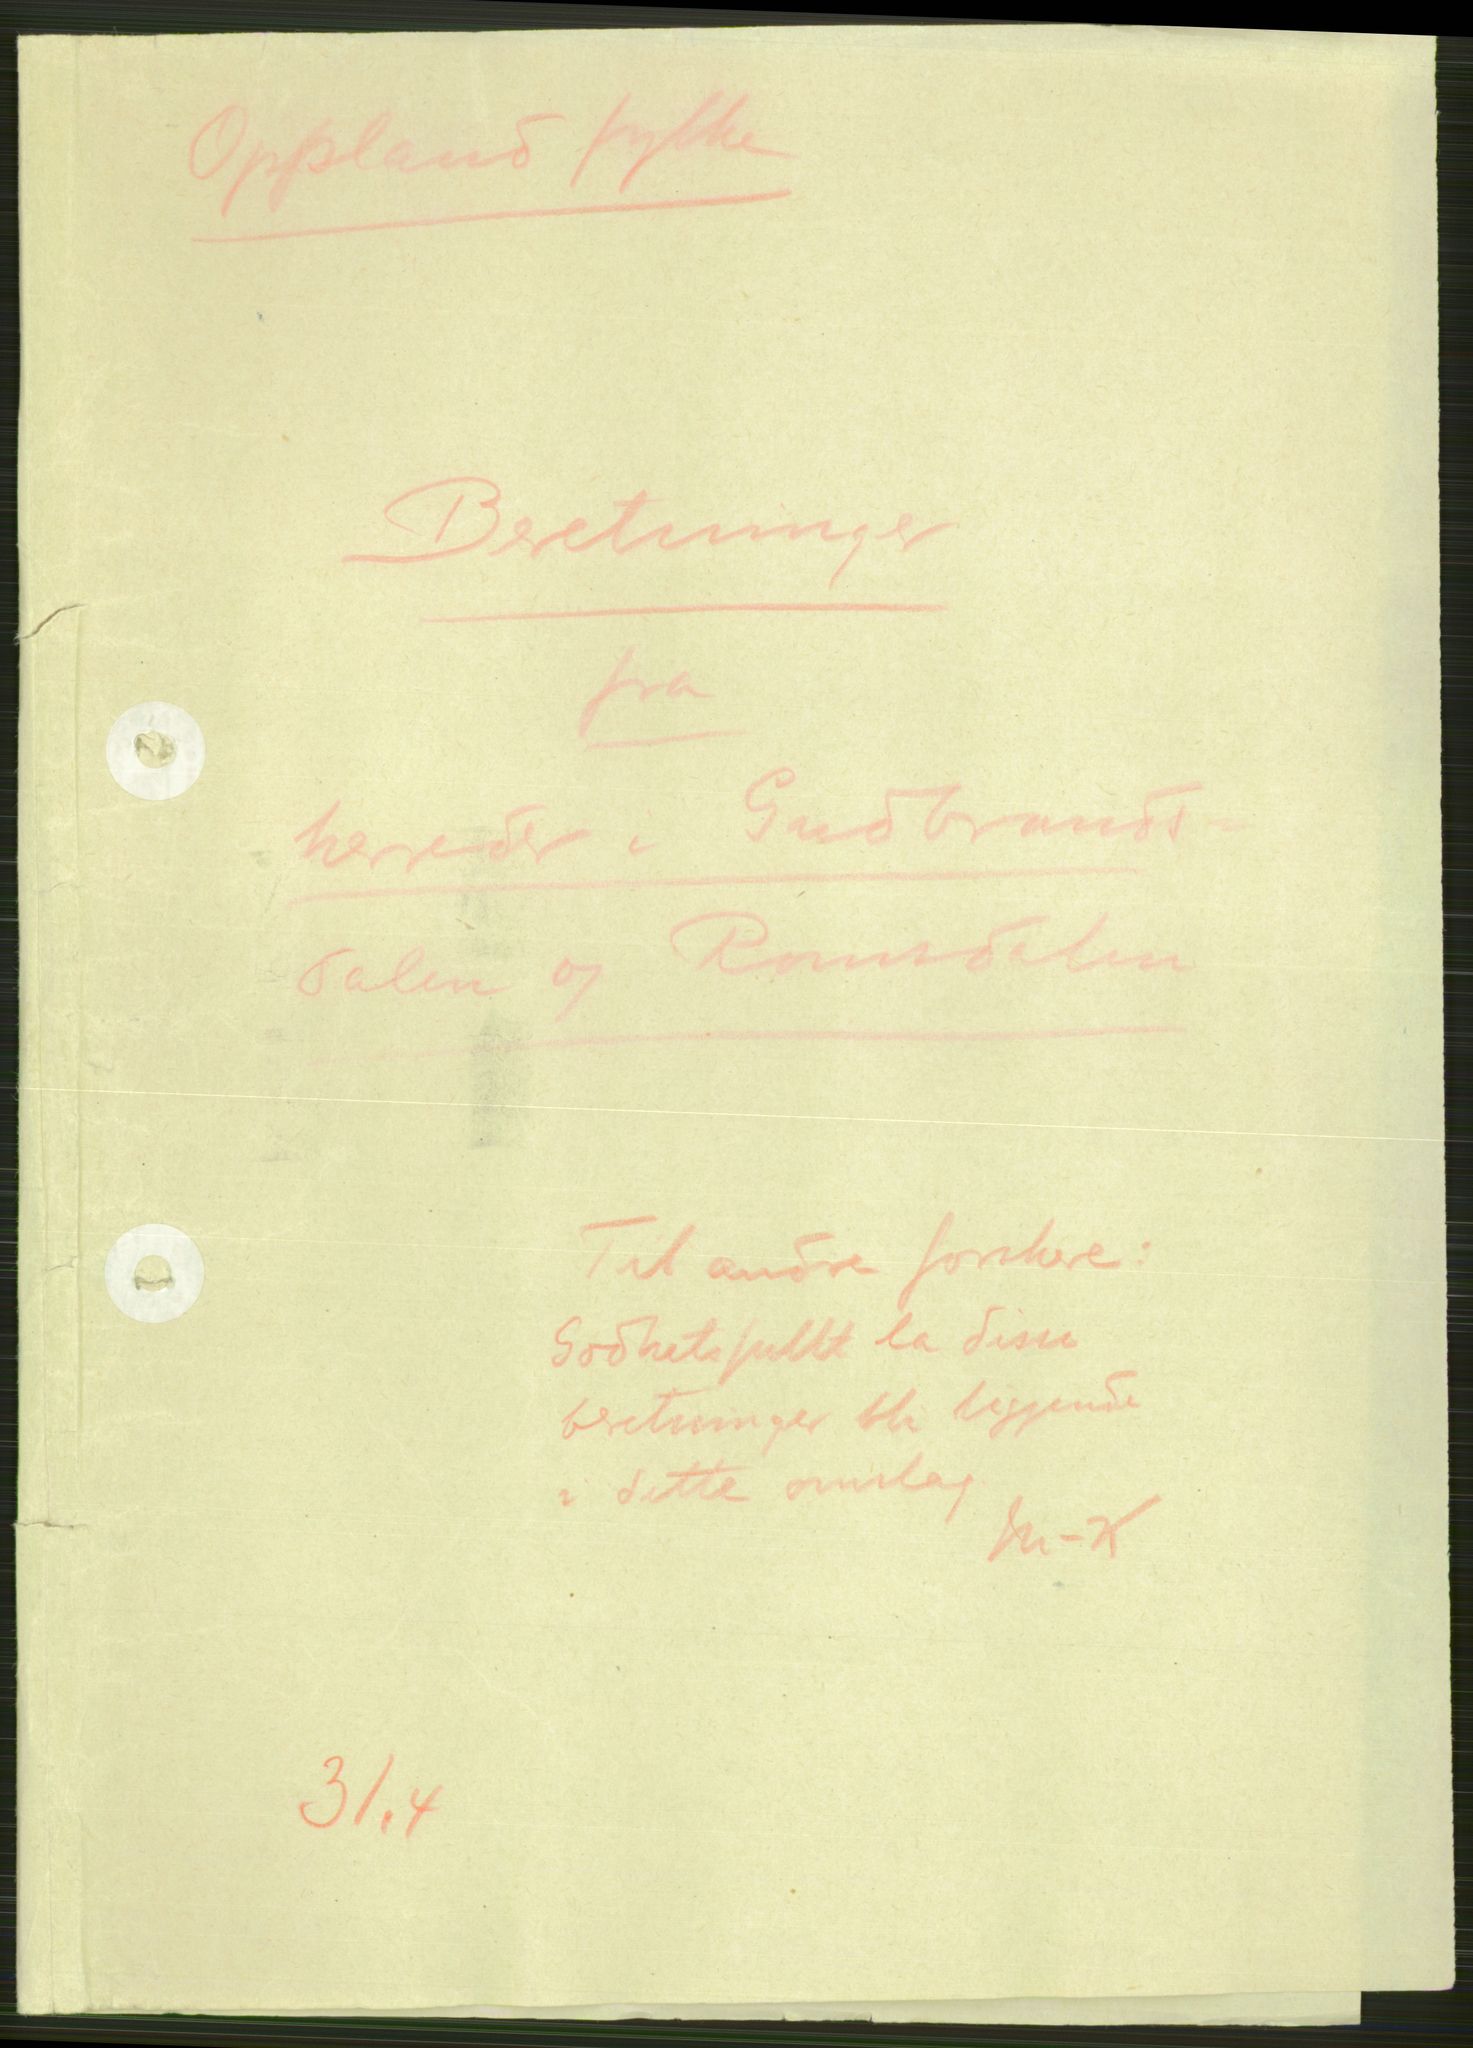 Oppland fylke
Beretninger
fra
herreder i Gudbrands-
dalen og Romsdalen
Til andre forskere:
Godhetsfullt la disse
beretninger bli liggende
i dette omslag
M-K
31.4